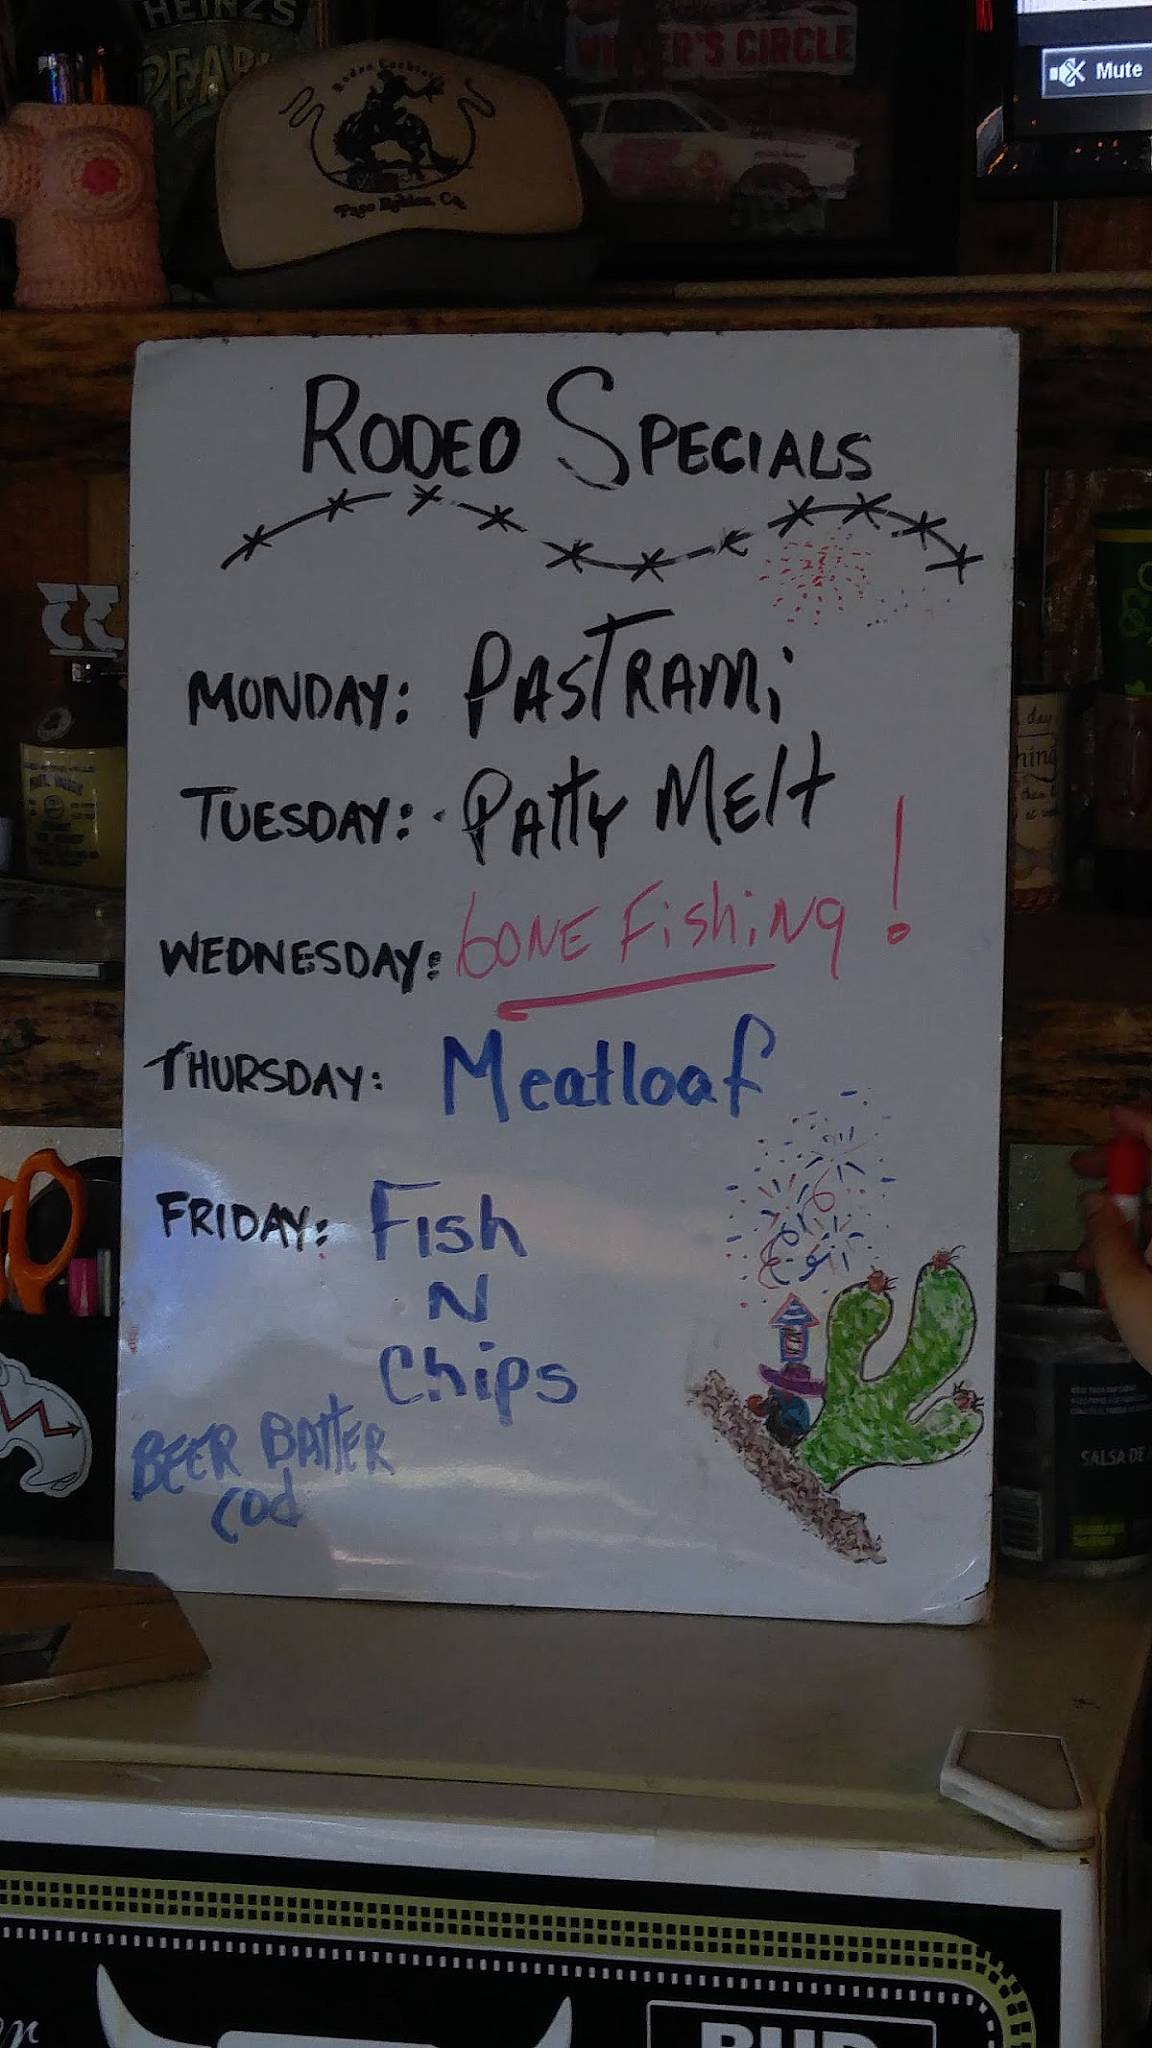 HEINZ'S
PEARL
Rodeo Cocktails
Paso Robles, Ca.
WINNER'S CIRCLE
Mute
RODEO SPECIALS
MONDAY: PASTRAMi
TUESDAY: PAttY MElt
WEDNESDAY: GONE FishiNg!
THURSDAY: Meatloaf
FRIDAY: Fish
N
Chips
BEER BAttER
Cod
day
hing
SALSA DE
BUD